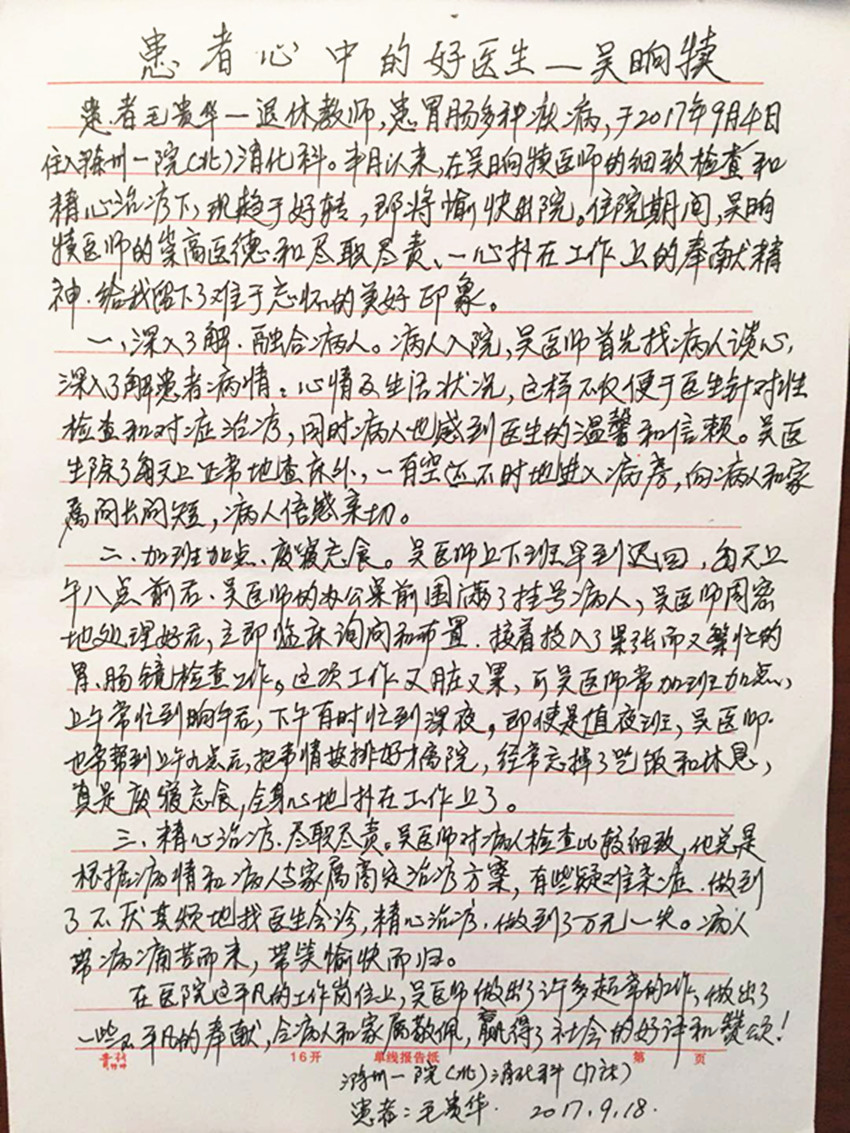 患者心中的好医生—吴晌犊
患者毛贵华—退休教师,患胃肠多种疾病,于2017年9月4日
住入滁州一院(北)消化科。半月以来,在吴晌犊医师的细致检查和
精心治疗下,现趋于好转,即将愉快出院。住院期间,吴晌
犊医师的崇高医德和尽职尽责、一心扑在工作上的奉献精
神.给我留下了难于忘怀的美好印象。
一、深入了解.融合病人。病人入院,吴医师首先找病人谈心,
深入了解患者病情:心情及生活状况,这样不仅便于医生针对性
检查和对症治疗,同时病人也感到医生的温馨和信赖。吴医
生除了每天上正常地查床外,一有空还不时地进入病房,向病人和家
属问长问短,病人倍感亲切。
二.加班加点、废寝忘食。吴医师上下班早到迟回,每天上
午八点前后、吴医师的办公桌前围满了挂号病人,吴医师周密
地处理好后,立即临床询问和布置.接着投入了紧张而又繁忙的
胃、肠镜检查工作。这项工作又脏又累,可吴医师常加班加点、
上午常忙到晌午后,下午有时忙到深夜。即使是值夜班,吴医师
也常帮到上午九点后,把事情安排好才离院,经常忘掉了吃饭和休息,
真是废寝忘食,全身心地扑在工作上了。
三、精心治疗.尽职尽责。吴医师对病人检查比较细致,他总是
根据病情和病人与家属商定治疗方案,有些疑难杂症.做到
了不厌其烦地找医生会诊,精心治疗.做到了万无一失。病人
带病痛苦而来,带笑愉快而归。
在医院这平凡的工作岗位上,吴医师做出了许多超常的工作,做出了
一些不平凡的奉献,令病人和家属敬佩,赢得了社会的好评和赞颂!
16开 单线报告纸 第 页
滁州一院(北)消化科
患者:毛贵华. 2017.9.18.